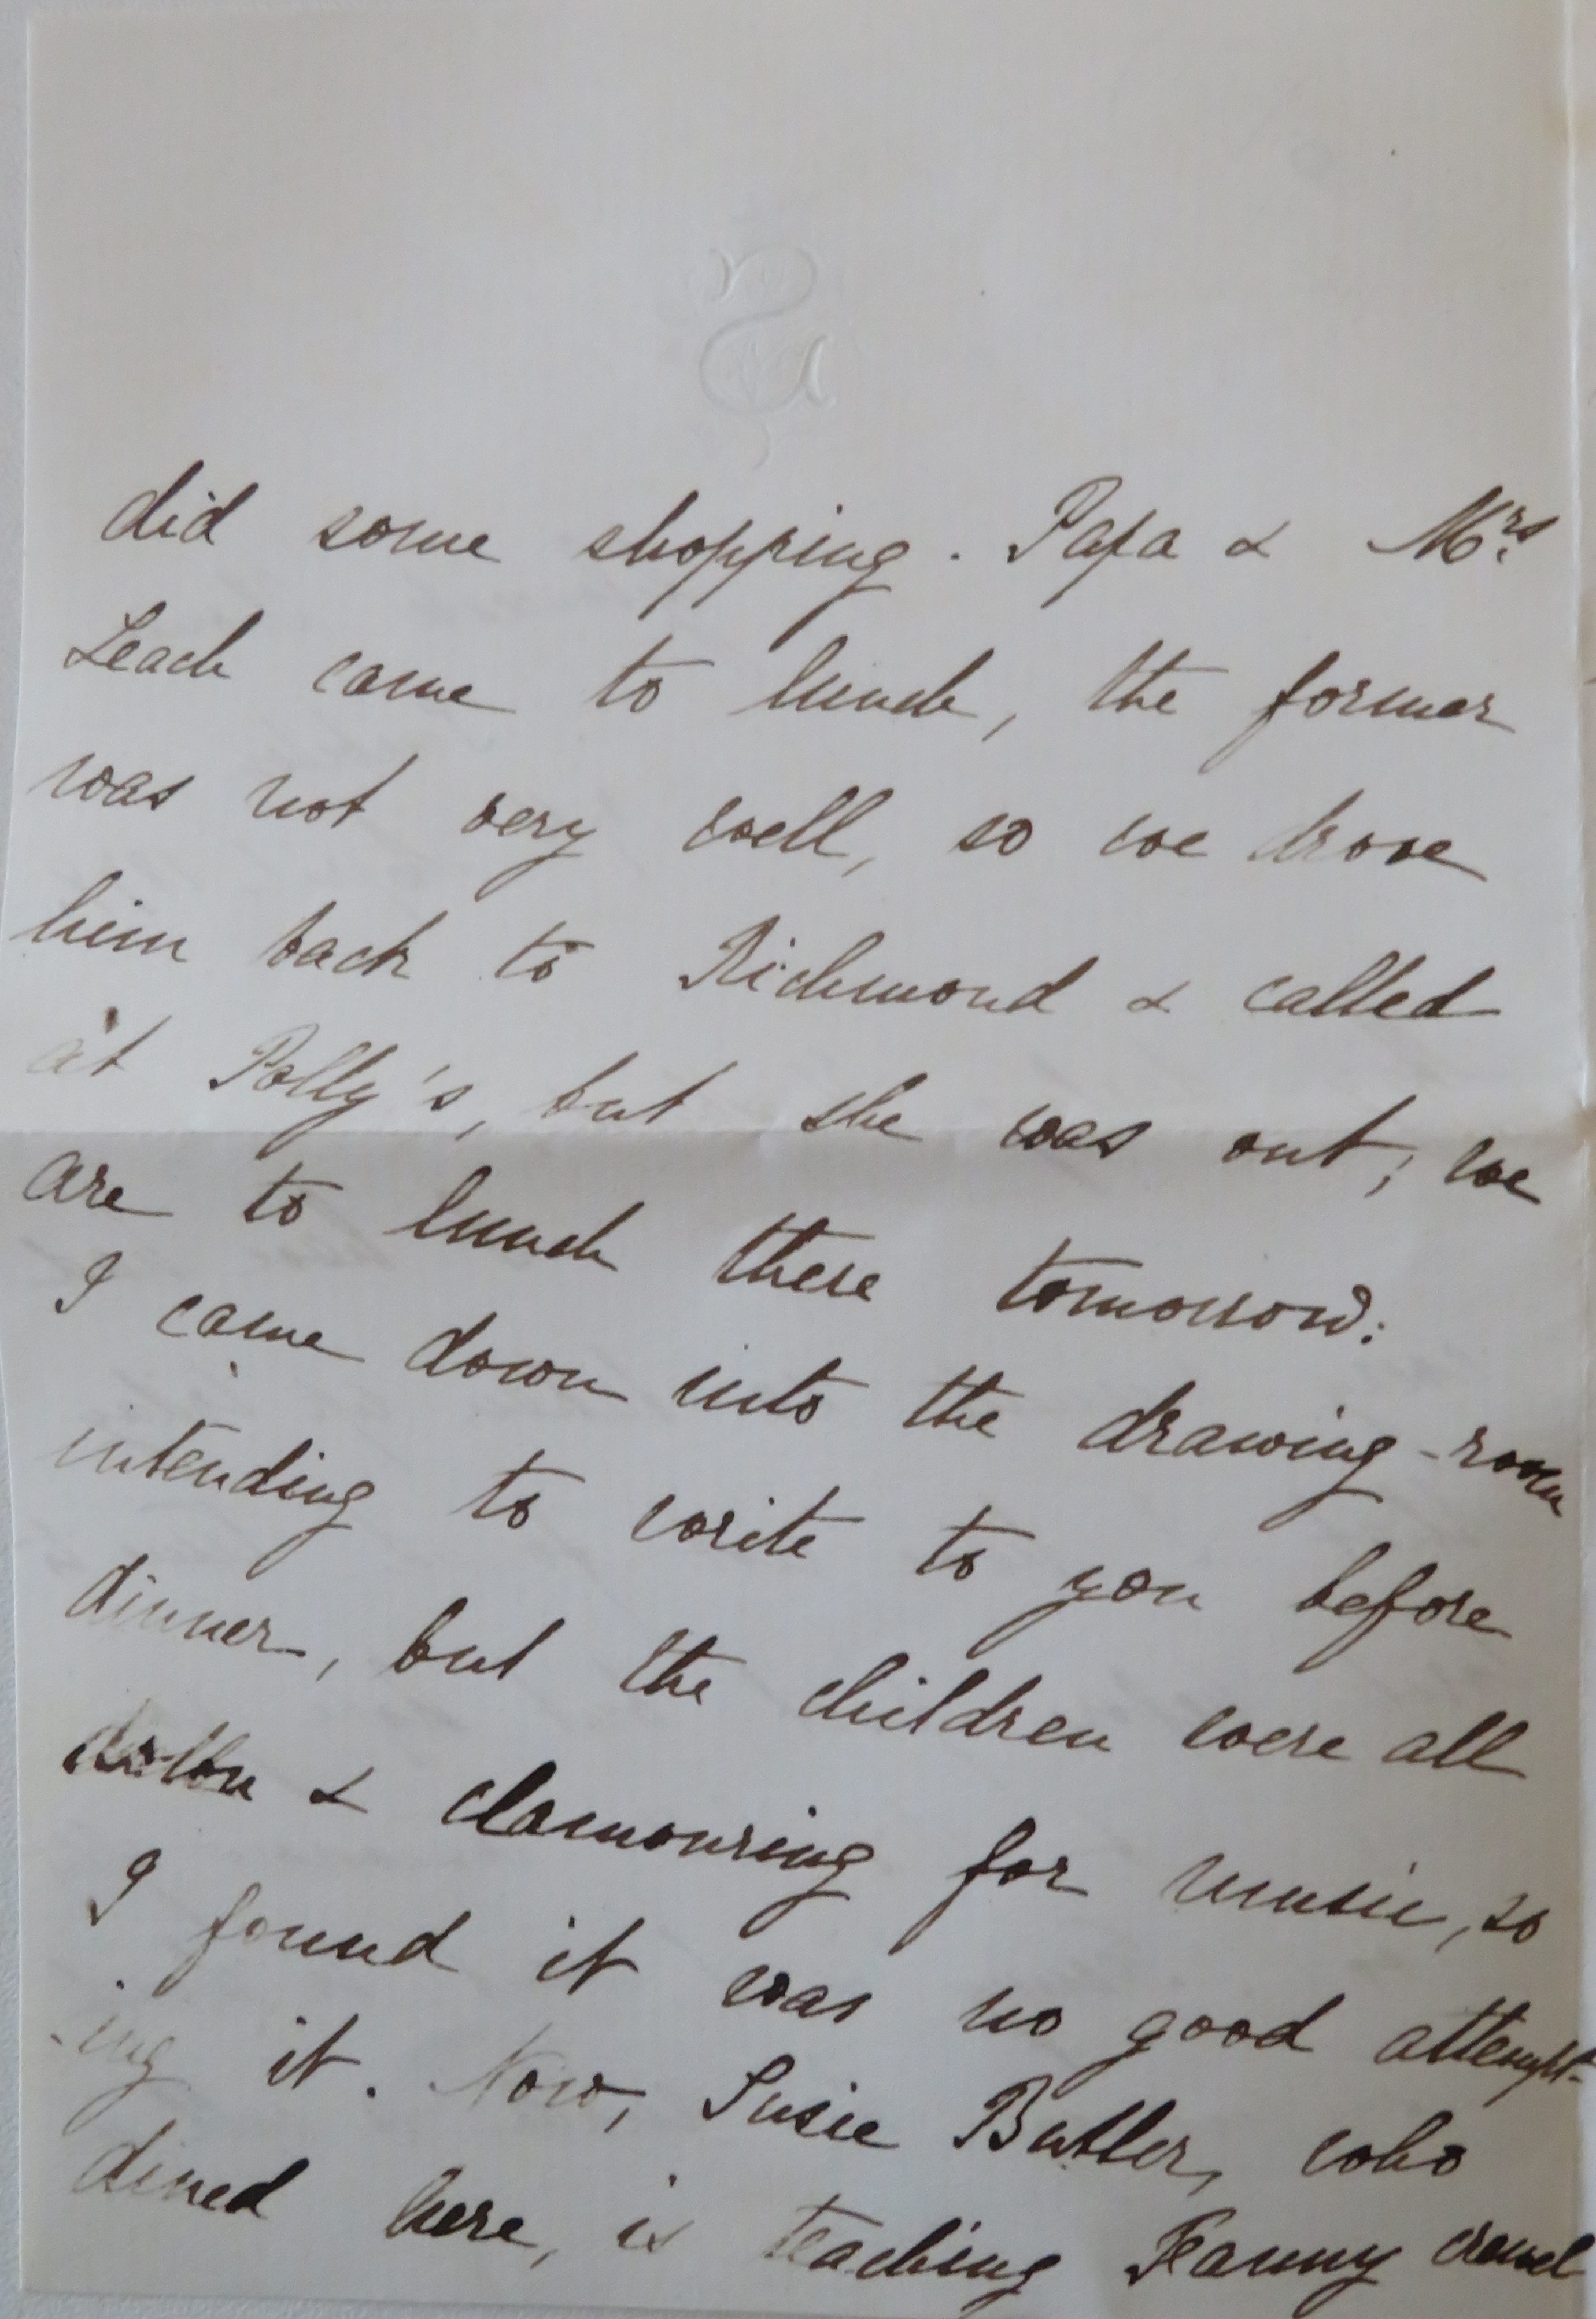 did some shopping. Papa & Mrs.
Leach came to lunch, the former
was not very well, so we drove
him back to Richmond & called
at Polly's, but she was out; we
are to lunch there tomorrow.
I came down into the drawing-room
intending to write to you before
dinner, but the children were all
down & clamouring for music, so
I found it was no good attempt-
-ing it. Now, Susie Butler, who
dined here, is teaching Fanny crewel